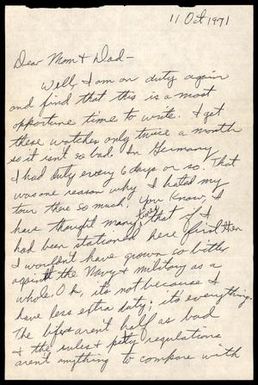 11 Oct 1971
Dear Mom & Dad-
Well, I am on duty again
and find that this is a most
opportune time to write. I get
these watches only twice a month
so it isn't so bad. In Germany
I had duty every 6 days or so. That
was one reason why I hated my
tour there so much. You know, I
have thought many times that if I
had been stationed here first then
I wouldn't have grown so bitter
against the Navy & military as a
whole. Oh, it's not because I
have less extra duty; it's everything.
The aren't half as bad
& the rules & petty regulations
aren't anything to compare with